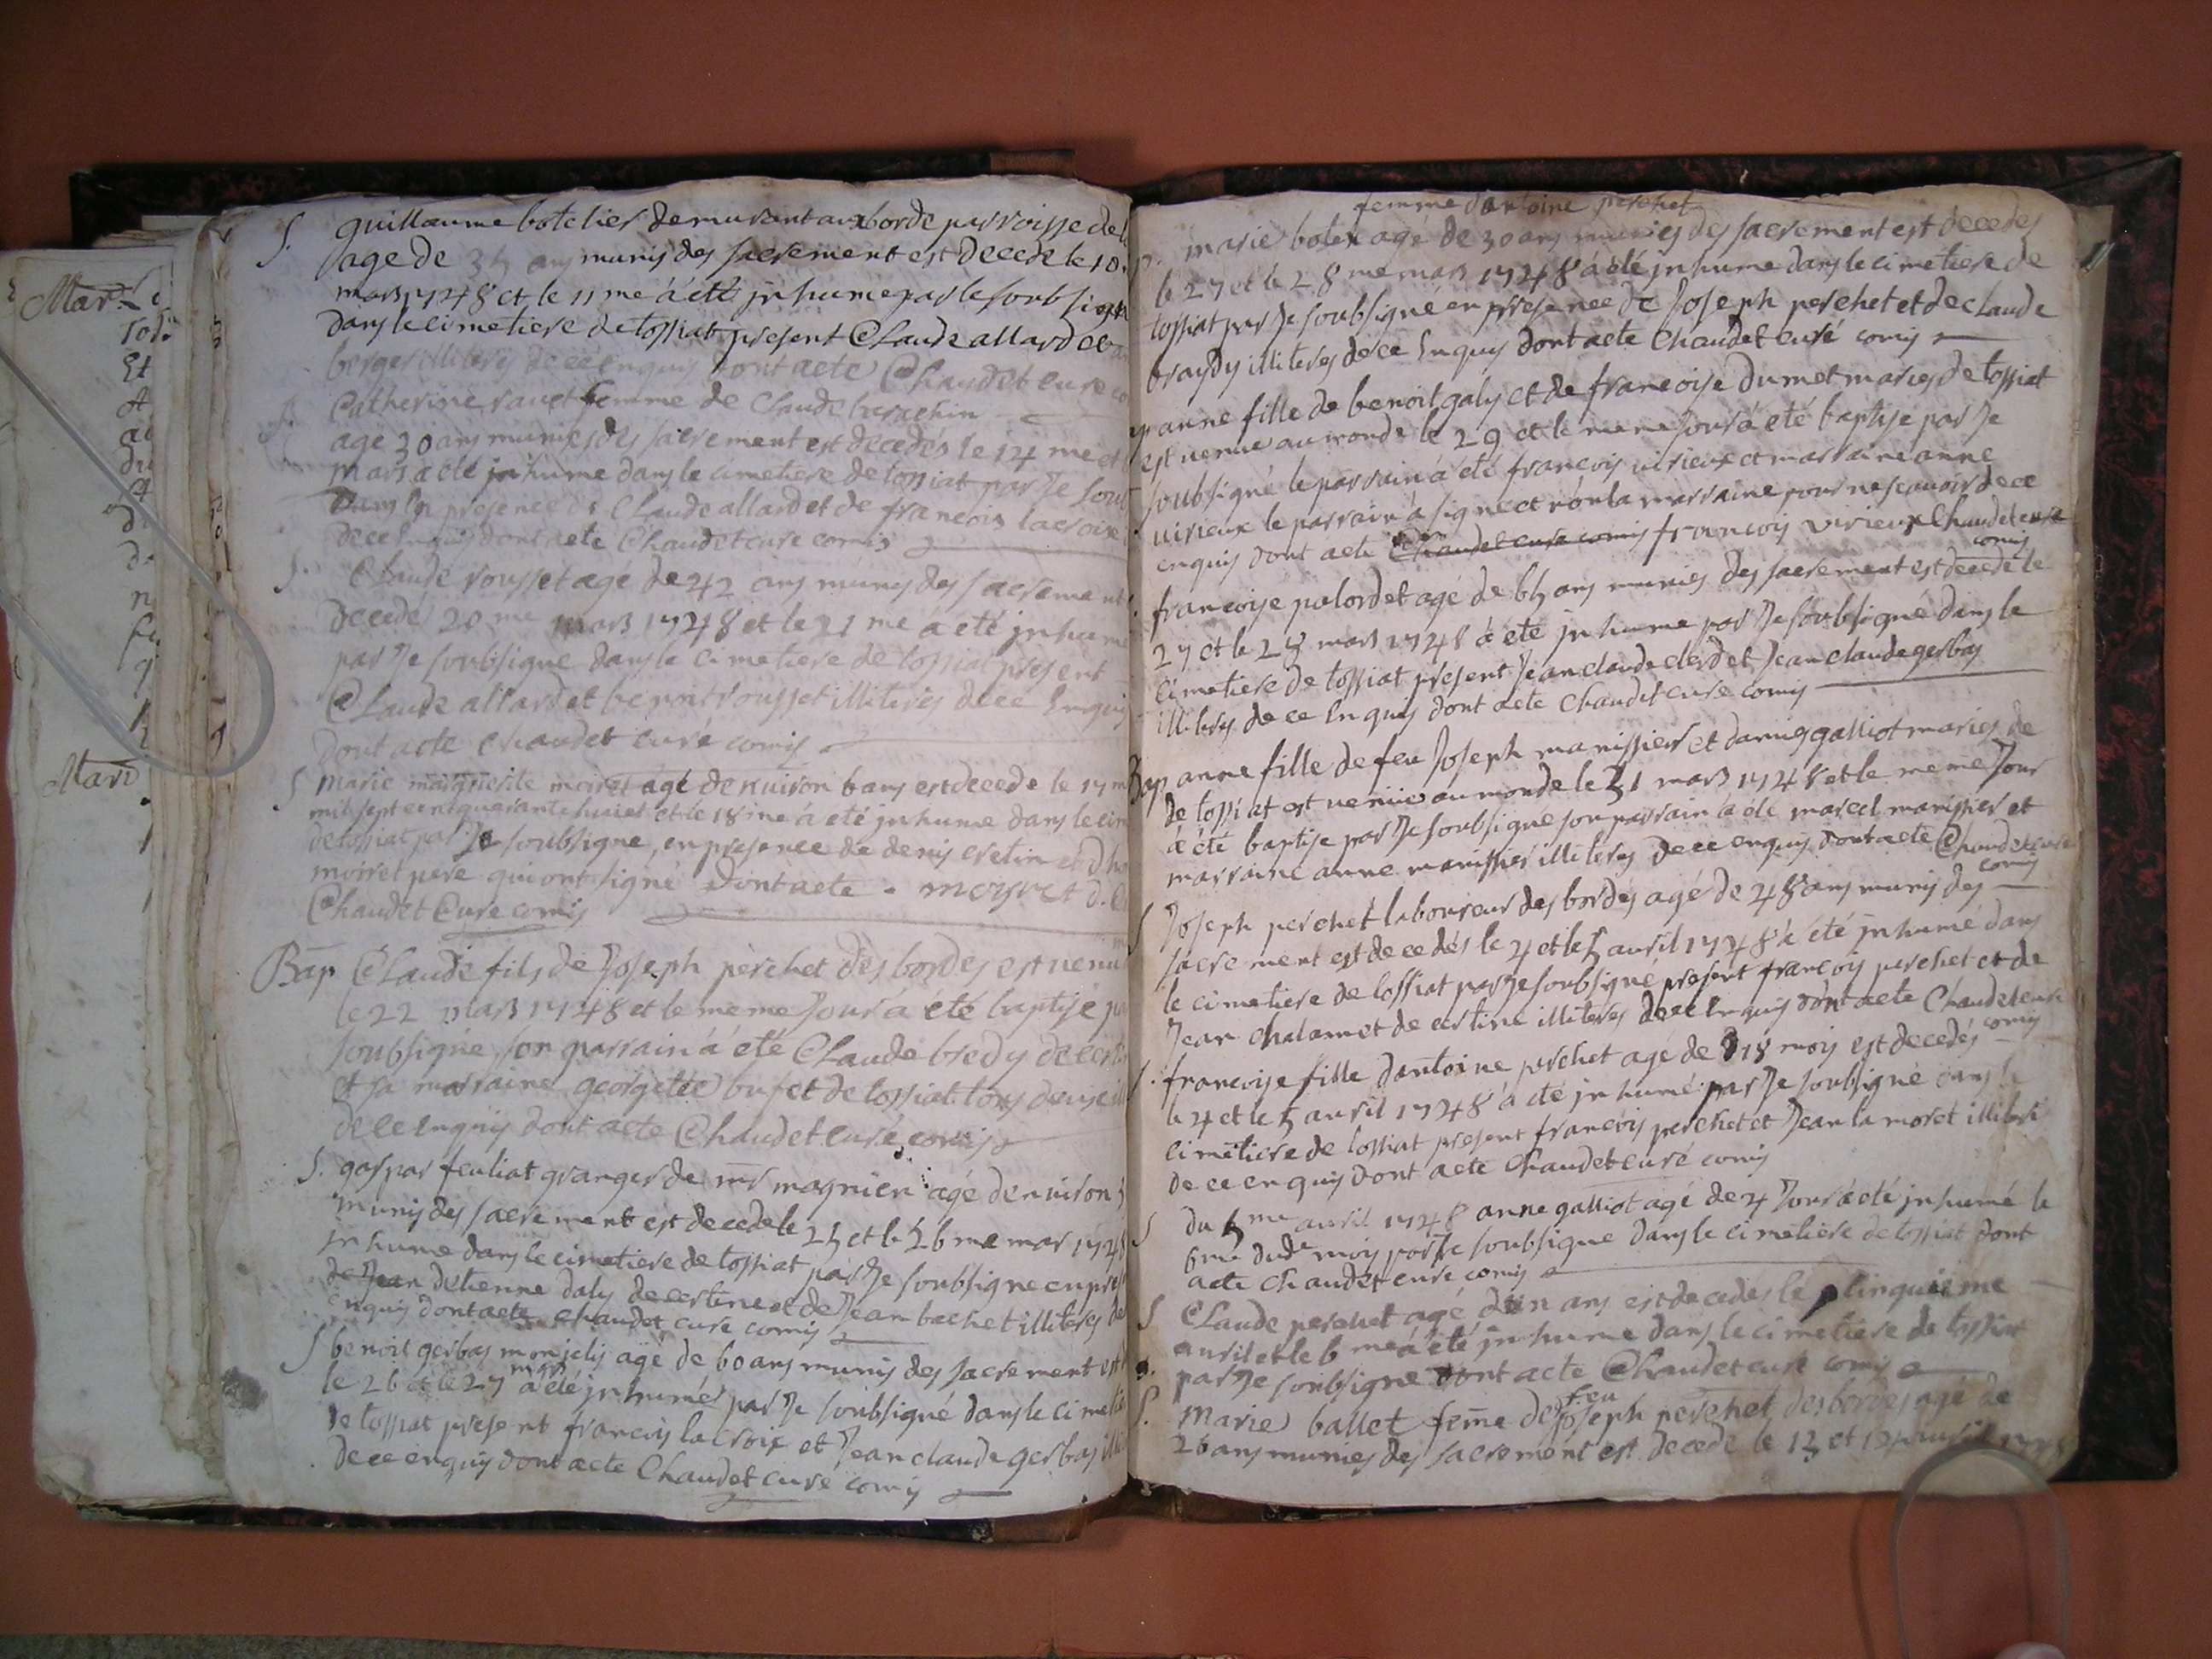 Mar
Mari
S. guillaume botelier demurant aux borde parroisse de
age de 35 ans munis des sacrement est decede le 10
mars 1748 et le 11 me à été jnhume par le soubsigné
dans le cimetiere de tossiat present Claude allard et
berger illiteres de ce enquis dont acte Chaudet cure
Catherine rauet femme de Claude
agé 30 ans munies des sacrement est decedés le 14 me et
mars a été jnhume dans le cimetiere de tossiat par Je soub
Dans la presence de Claude allard et de francois lacroix
de ce Enquis dont acte Chaudet cure comis
S. Claude rousset agé de 42 ans munis des sacrement
decedé 20 me mars 1748 et le 21 me a été jnhume
par Je soubsigne dans le cimetiere de tossiat present
Claude allard et benoit rousset illiteres de ce Enquis
dont acte Chaudet cure comis
S Marie moiret agé de nuiron 6 ans est decede le 17 m
mil sept cent quarante huict et le 18 me à été jnhume dans le cim
de tossiat par Je soubsigne, en presence de denis cretin et
moiret pere qui ont signé Dont acte . moyret D.
Chaudet Cure comis
Bap Claude fils de Joseph perchet des bordes est venu
le 22 mars 1748 et le meme Jour à été baptisé
soubsigné son parrain à été Claude bredy de
et sa marraine georgette bufet de tossiat tous deux
de ce Enquis dont acte Chaudet curé comis
S. gaspar feuliat granger de mr magnien agé de nuiron
munis des sacrement est decede le 25 et le 26 me mar 1748
jnhume dans le cimetiere de tossiat par Je soubsigne en pre
de Jean detienne daly de certine et de Jean bachet illiteres de
enquis dont acte Chaudet cure comis
S benoit gerbas monjelis agé de 60 ans munis des sacrement est
le 26 et le 27 mar à été jnhumé par Je soubsigné dans le cimetie
de tossiat present francois lacroix et Jean claude gerbas
de ce enquis dont acte Chaudet cure comis
femme dantoine perchet
marie botex agé de 30 ans munies des sacrement est decedes
le 27 et le 28 me mars 1748 à été jnhume dans le cimetiere de
tossiat par Je soubsigné en presence de Joseph perchet et de claude
braydy illiteres de ce Enquis dont acte Chaudet curé comis
anne fille de benoit galy et de francoise dumet maries de tossiat
est venue au monde le 29 et le meme Jour à été baptise par Je
soubsigné le parrain à été francois virieux et marraine anne
virieux le parrain à signé et non la marraine pour ne scavoir de ce
enquis dont acte Chaudet cure comis francois virieux Chaudet cure
comis
francoise palordet agé de 65 ans munies des sacrement est decedé le
27 et le 28 mars 1748 à été jnhume par Je soubsigné dans le
cimetiere de tossiat present Jean claude clerd et Jean claude gerbas
illiteres de ce Enquis dont acte Chaudet cure comis
Bap anne fille de feu Joseph manissier et danne galliot maries de
de tossiat est venüe au monde le 31 mars 1748 et le meme Jour
à été baptise par Je soubsigne son parrain a été marcel manissier et
marraine anne manissier illiteres de ce enquis dont acte Chaudet cure
comis
S Joseph perchet laboureur des bordes agé de 48 ans munis des
sacrement est decedés le 4 et le 5 auril 1748 à été jnhumé dans
le cimetiere de tossiat par Je soubsigné present francois perchet et de
Jean chalamet de certine illiteres de ce Enquis dont acte Chaudet cure
comis
S. francoise fille dantoine perchet agé de 18 mois est decedés
le 4 et le 5 auril 1748 à été jnhumé par Je soubsigné dans le
cimetiere de tossiat present francois perchet et Jean la moret illiteré
de ce enquis dont acte Chaudet curé comis
S du 5 me auril 1748 anne galliot agé de 4 Jour à été jnhumé le
6 me dude mois par Je soubsigne dans le cimetiere de tossiat dont
acte Chaudet cure comis
S Claude perchet agé dun ans est decedes le cinquieme
auril et le 6 me à été jnhume dans le cimetiere de tossiat
par Je soubsigne dont acte Chaudet cure comis
S. Marie ballet feme de feu Joseph perchet des bordes agé de
26 ans munies des sacrement est decede le 13 et 14 auril 1748